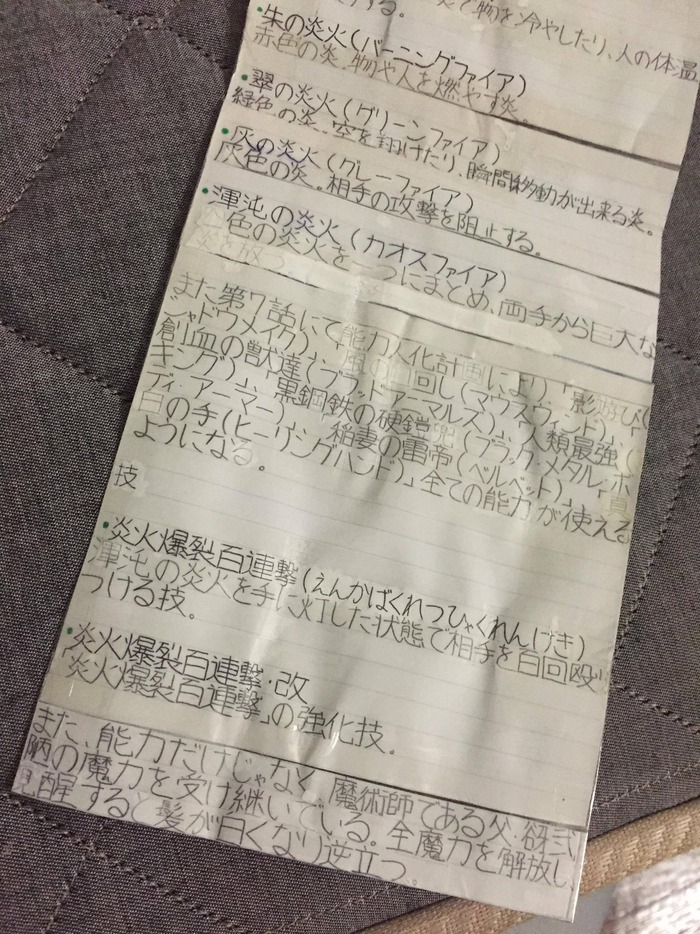 する。 炎で物を冷やしたり、人の体温
・朱の炎火(バーニングファイア)
赤色の炎、物や人を燃やす炎。
・翠の炎火(グリーンファイア)
緑色の炎、空を翔けたり、瞬間移動が出来る炎。
・灰の炎火(グレーファイア)
灰色の炎。相手の攻撃を阻止する。
・渾沌の炎火(カオスファイア)
色の炎火を一つにまとめ、両手から巨大な
炎を放つ
また第7話にて能力人化計画により、「影遊び(
シャドウメイク)」、「風の 回し(マウスウィンド)」、「
創血の獣達(ブラッドアニマルズ)」、「人類最強(
キング)」、「黒鋼鉄の硬鎧兜(ブラックメタル・ボ
ディ・アーマー)」、「稲妻の雷帝(ベルベット)」、「真
白の手(ヒーリングハンド)」全ての能力が使える
ようになる。
技
・炎火爆裂百連撃(えんかばくれつひゃくれんげき)
渾沌の炎火を手に灯した状態で相手を百回殴り
つける技。
・炎火爆裂百連撃・改
「炎火爆裂百連撃」の強化技。
また、能力だけじゃなく、魔術師である父、
の魔力を受け継いでいる。全魔力を解放し、
覚醒すると髪が白くなり逆立つ。